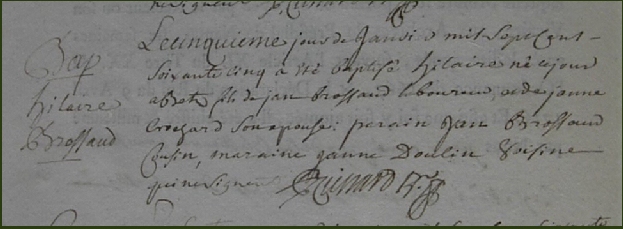 Bap
hilaire
Brossaud
Le cinquieme jour de Janvie mil Sept Cent –
Soixante Cinq a été baptisé hilaire né ce jour
fils de jan Brossaud laboureur, et de janne
Crochard Son epouse: parain Jean Brossaud
Cousin, maraine janne Doulin Voisine
qui ne signe